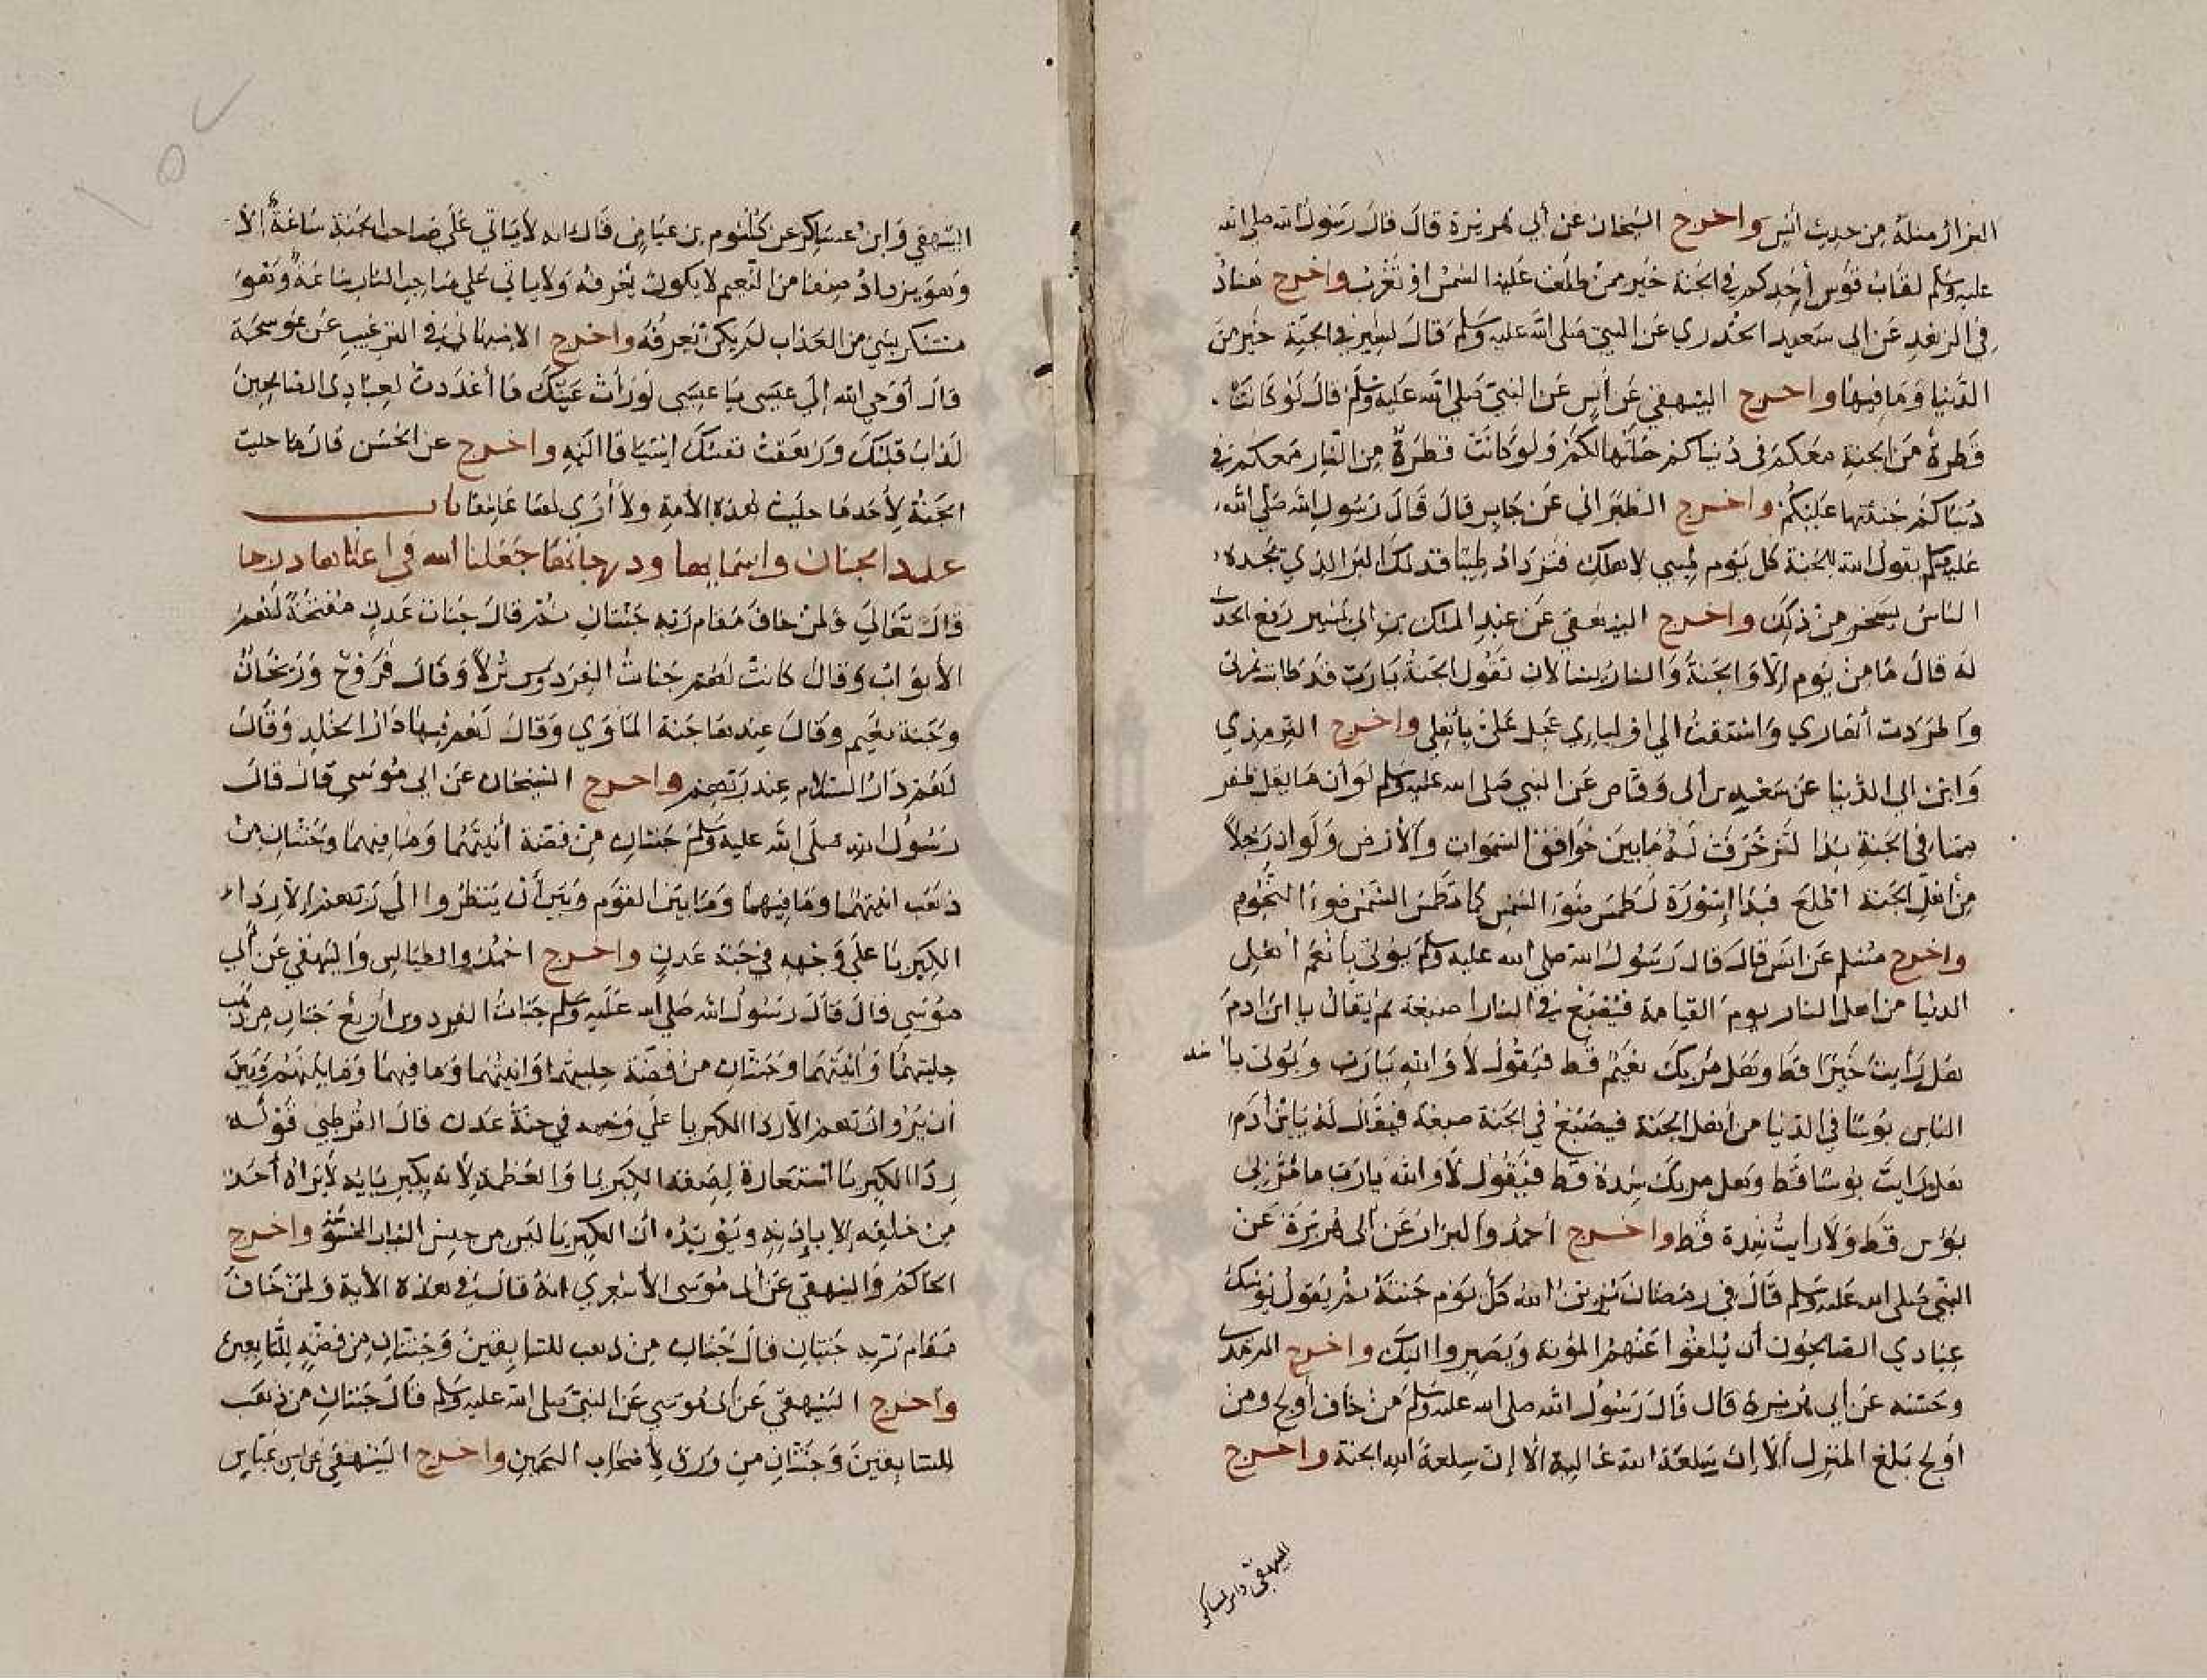 البزار مثله من حديث أنس واخرج الشيخان عن أبي هريرة قال قال رسول الله صلى الله
عليه وسلم لقاب قوس أحدكم في الجنة خير مما طلعت عليه الشمس او تغرب واخرج هناد
في الزهد عن ابي سعيد الخدري عن النبي صلى الله عليه وسلم قال لشبر في الجنة خير من
الدنيا وما فيها واخرج البيهقي عن أنس عن النبي صلى الله عليه وسلم قال لو كانت
قطرة من الجنة معكم في دنياكم حلتها لكم ولو كانت قطرة من النار معكم في
دنياكم خبثتها عليكم واخرج الطبراني عن جابر قال قال رسول الله صلى الله
عليه وسلم يقول الله للجنة كل يوم طيبي لاهلك فتزداد طيبا فذلك البرد الذي يجده
الناس بسحر من ذلك واخرج البيهقي عن عبد الملك بن ابي بشير رفع الحديث
له قال ما من يوم إلا والجنة والنار يسالان تقول الجنة يا رب قد طابت ثمرتي
واطردت أنهاري واشتقت الي اوليايي عجل علي بأهلي واخرج الترمذي
وابن ابي الدنيا عن سعد بن أبي وقاص عن النبي صلى الله عليه وسلم لو أن ما يقل ظفر
مما في الجنة بدا لتزخرفت له ما بين خوافق السموات والأرض ولو ان رجلا
من أهل الجنة اطلع فبدا إسورة لطمس ضوء الشمس كما تطمس الشمس ضوء النجوم
واخرج مسلم عن انس قال قال رسول الله صلي الله عليه وسلم يؤتى بأنعم أهل
الدنيا من اهل النار يوم القيامة فيصبغ في النار اصبغة ثم يقال يا ابن ادم
هل رأيت خيرا قط وهل مر بك نعيم قط فيقول لا والله يا رب ويؤتى با شد
الناس بوسا في الدنيا من أهل الجنة فيصبغ في الجنة صبغة فيقال له يا بن أدم
هل رايت بوسا قط وهل مر بك شدة قط فيقول لا والله يا رب ما مر بي
بؤس قط ولا رأيت شدة قط واخرج أحمد والبزار عن أبى هريرة عن
النبي صلى الله عليه وسلم قال في رمضان يزين الله كل يوم جنته ثم يقول يوشك
عبادي الصالحون أن يلقوا عنهم المؤنة ويصيروا اليك واخرج الترمذي
وحسنه عن أبي هريرة قال قال رسول الله صلى الله عليه وسلم من خاف أدلج ومن
أدلج بلغ المنزل ألا إن سلعة الله غالية ألا إن سلعة الله الجنة واخرج
البيهقي وابن عساكر
البيهقي وابن عساكر عن كلثوم بن عياض قال انه لا ياتي على صاحب الجنة ساعة الا
وهو يزداد صنفا من النعيم لا يكون يعرفه ولا ياتي علي صاحب النار ساعة وهو
مستنكر بشي من العذاب لم يكن يعرفه واخرج الاصبهاني في الترغيب عن عوسجة
قال أوحي الله إلي عيسى يا عيسى لو رأت عينك ما أعددت لعبادي الصالحين
لذاب قلبك وزهقت نفسك إشتياقا اليه واخرج عن الحسن قال ما حليت
الجنة لأحد ما حليت لهذه الأمة ولا أرى لها عاشقا باب
عدد الجنان واسمايها ودرجاتها جعلنا الله في اعلاها درجا
قال تعالي ولمن خاف مقام ربه جنتان ثم قال جنات عدن مفتحة لهم
الأبواب وقال كانت لهم جنات الفردوس نزلا وقال فروح وريحان
وجنة نعيم وقال عندها جنة المأوي وقال لهم فيها دار الخلد وقال
لهم دار السلام عند ربهم واخرج الشيخان عن ابي موسى قال قال
رسول الله صلى الله عليه وسلم جنتان من فضة أنيتهما وما فيهما وجنتان من
ذهب انيتهما وما فيهما وما بين القوم وبين أن ينظروا الي ربهم إلا رداء
الكبريا علي وجهه في جنة عدن واخرج احمد والطيالسي والبيهقي عن أبي
موسي قال قال رسول الله صلي الله عليه وسلم جنات الفردوس أربع جنتان من ذهب
حليتهما وأنيتهما وما فيهما وجنتان من فضة حليتهما وانيتهما وما فيهما وما بينهم وبين
أن يروا ربهم إلا ردا الكبريا علي وجهه في جنة عدن قال القرطبي قوله
ردا الكبريا استعارة لصفة الكبريا والعظمة لأنه بكبريايه لا يراه أحد
من خلقه إلا بإذنه ويؤيده أن الكبريا ليس من جنس الثياب المحسوسة واخرج
الحاكم والبيهقي عن أبى موسى الأشعري انه قال في هذه الآية ولمن خاف
مقام ربه جنتان قال جنتان من ذهب للسابقين وجنتان من فضة للتابعين
وأخرج البيهقي عن أبى موسي عن النبي صلى الله عليه وسلم قال جنتان من ذهب
للسابقين وجنتان من ورق لأصحاب اليمين واخرج البيهقي عن ابن عباس